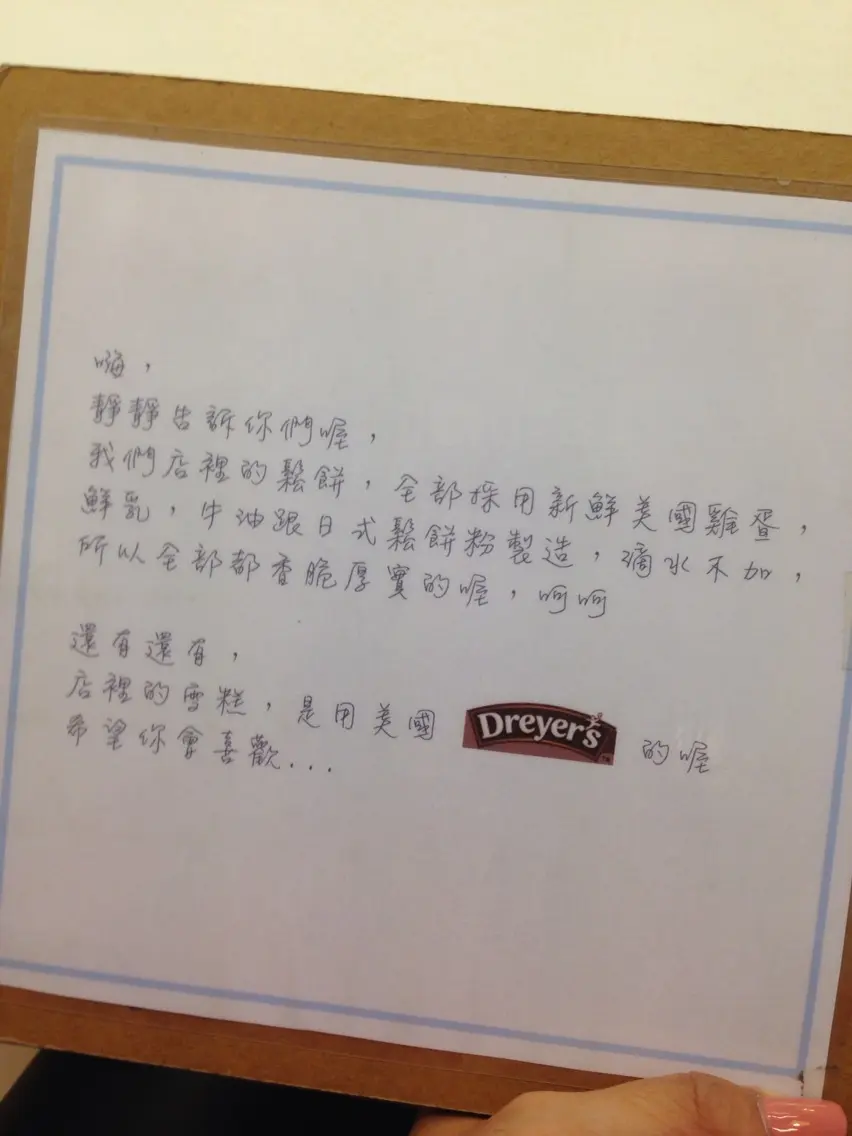 嗨，
靜靜告訴你們喔，
我們店裡的鬆餅，全部採用新鮮美國雞蛋，
鮮乳，牛油跟日式鬆餅粉製造，滴水不加，
所以全部都香脆厚實的喔，呵呵
還有還有，
店裡的雪糕，是用美國 Dreyer's 的喔
希望你會喜歡...